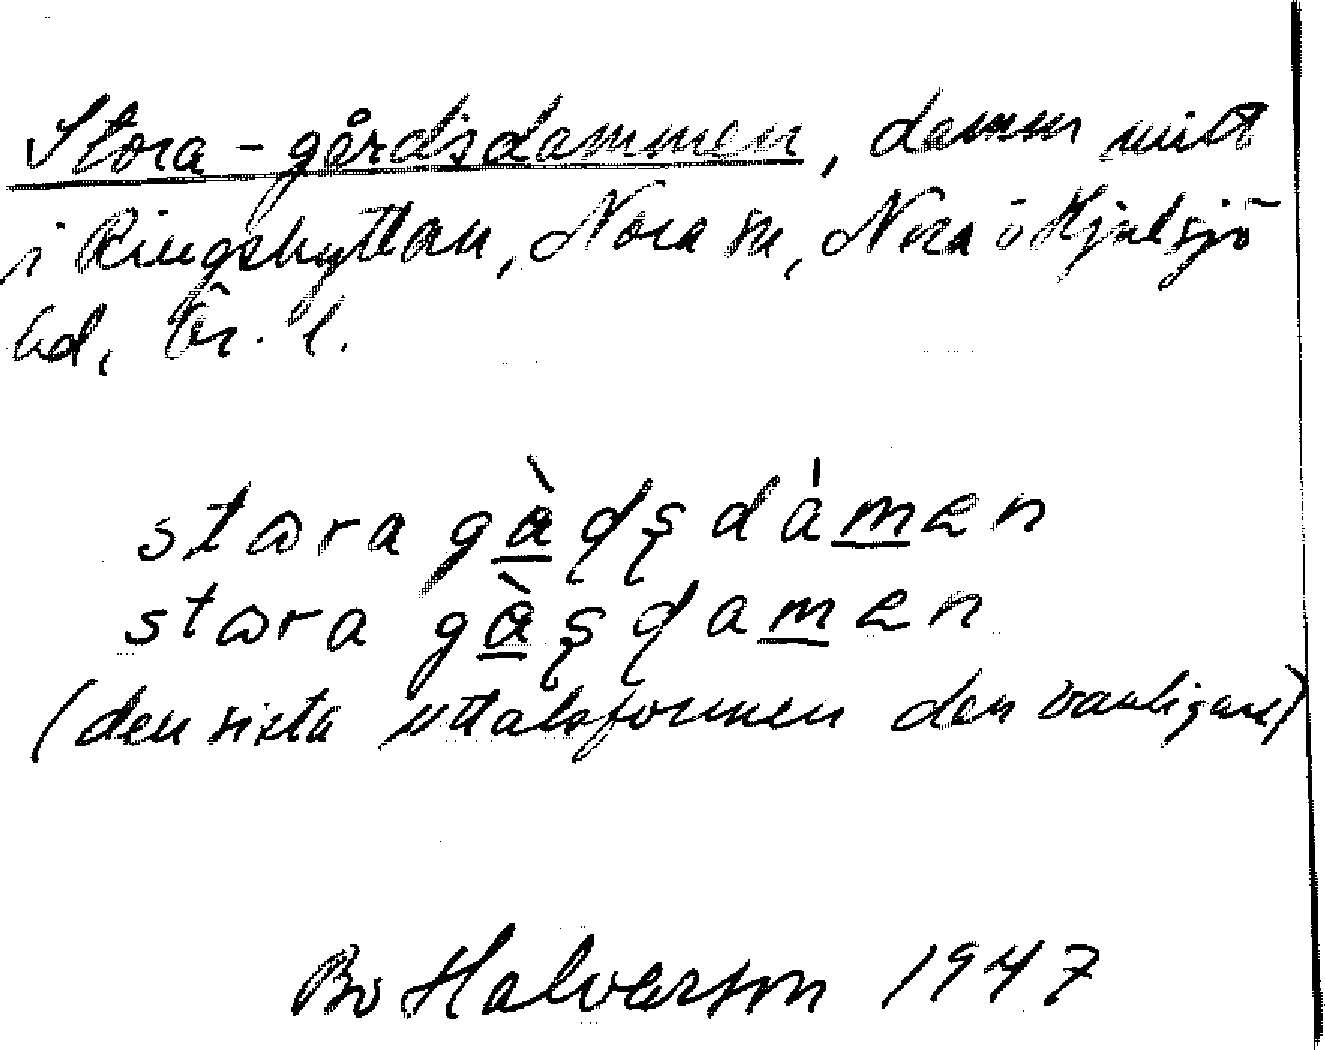 Stora-gårdsdammen, damm mitt
i Ringshyttan, Nora sn, Nora o Hjulsjö
bd, Ör. l.
stɷra gàɖʂdámen
stɷra gàʂɖamen
(den sista uttalsformen den vanligare)
Bo Halvarson 1947